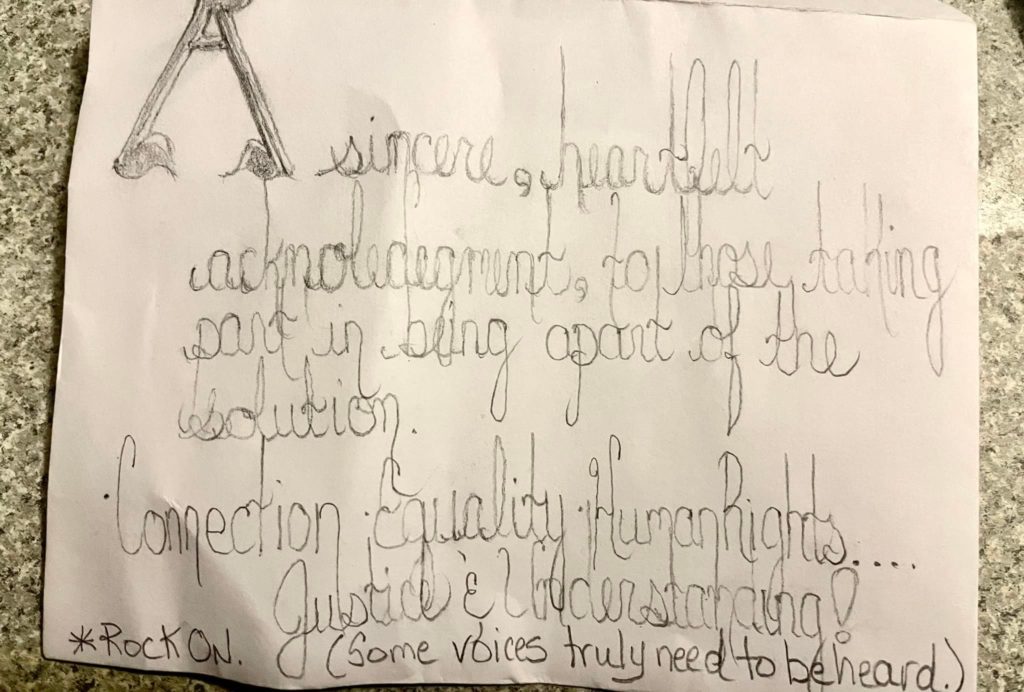 A sincere, heartfelt
acknoledegment, to those taking
part in being apart of the
solution.
·Connection ·Equality ·Human Rights....
Justice & Understanding!
*ROCK ON. (Some voices truly need to be heard.)